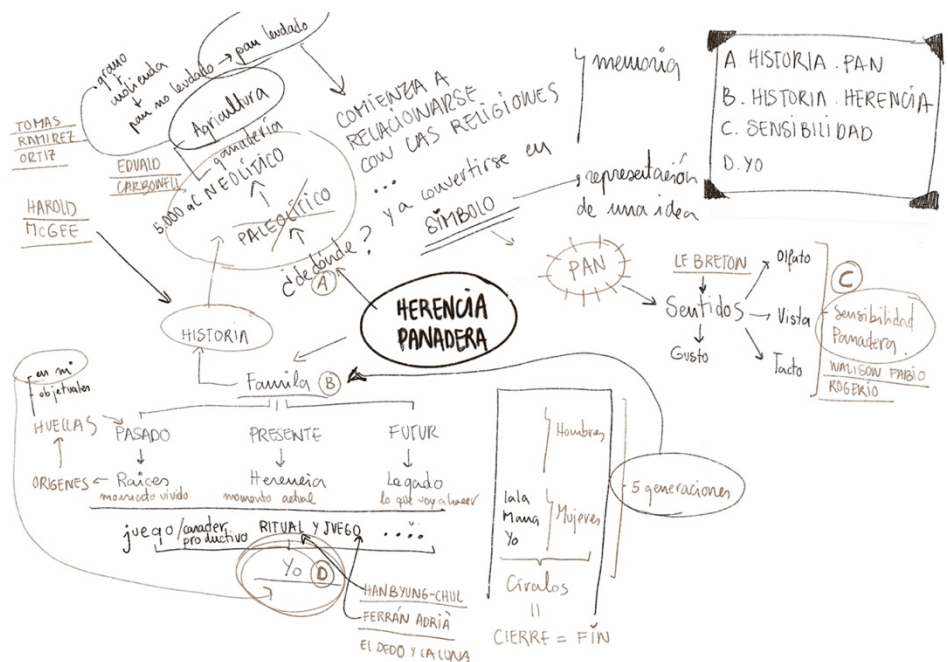 grano
molienda
pan no leudado → pan leudado
Agricultura
ganadería
5.000 aC NEOLÍTICO
PALEOLÍTICO
TOMAS
RAMIREZ
ORTIZ
EDUALD
CARBONELL
HAROLD
McGEE
COMIENZA A
RELACIONARSE
CON LAS RELIGIONES
...
y a convertirse en
SÍMBOLO
memoria
representación
de una idea
A HISTORIA . PAN
B. HISTORIA . HERENCIA
C. SENSIBILIDAD
D. YO
¿de dónde?
A
HERENCIA
PANADERA
PAN
LE BRETON
Sentidos
Olfato
Vista
Tacto
Gusto
C
Sensibilidad
Panadera
WALISON FABIO
ROGERIO
HISTORIA
Familia B
en mi
- objetuales
HUELLAS
ORÍGENES
PASADO
Raíces
momento vivido
PRESENTE
Herencia
momento actual
FUTUR
Legado
lo que voy a hacer
juego/caracter
productivo
RITUAL Y JUEGO
....
Yo D
HANBYUNG-CHUL
FERRÁN ADRIÀ
EL DEDO Y LA LUNA
Hombres
Iaia
Mama
Yo
Mujeres
Círculos
=
CIERRE = FIN
5 generaciones